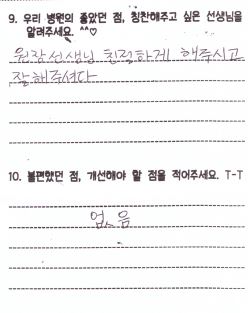 9. 우리 병원의 좋았던 점, 칭찬해주고 싶은 선생님을
알려주세요. ^^♡
원장선생님 친절하게 해주시고
잘해주셨다
10. 불편했던 점, 개선해야 할 점을 적어주세요. T-T
없음